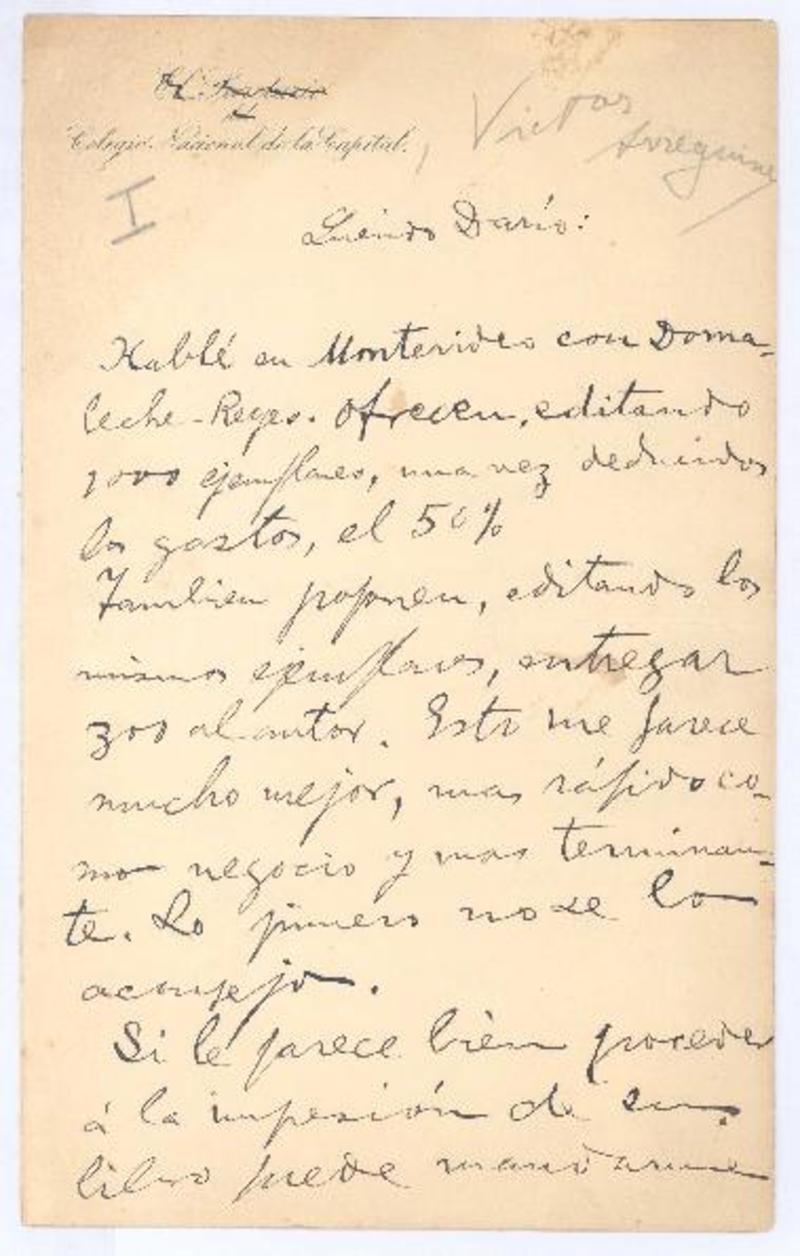 Colegio Nacional de la Capital.
Victor
Arreguine
I
Querido Darío:
Hablé en Montevideo con Dorna-
leche-Reyes. Ofrecen, editando
1000 ejemplares, una vez deducidos
los gastos, el 50%
Tambien proponen, editando los
mismos ejemplares, entregar
300 al autor. Esto me parece
mucho mejor, mas rápido co-
mo negocio y mas terminan-
te. Lo primero no se lo
aconsejo.
Si le parece bien proceder
á la impresión de su
libro puede mandarme